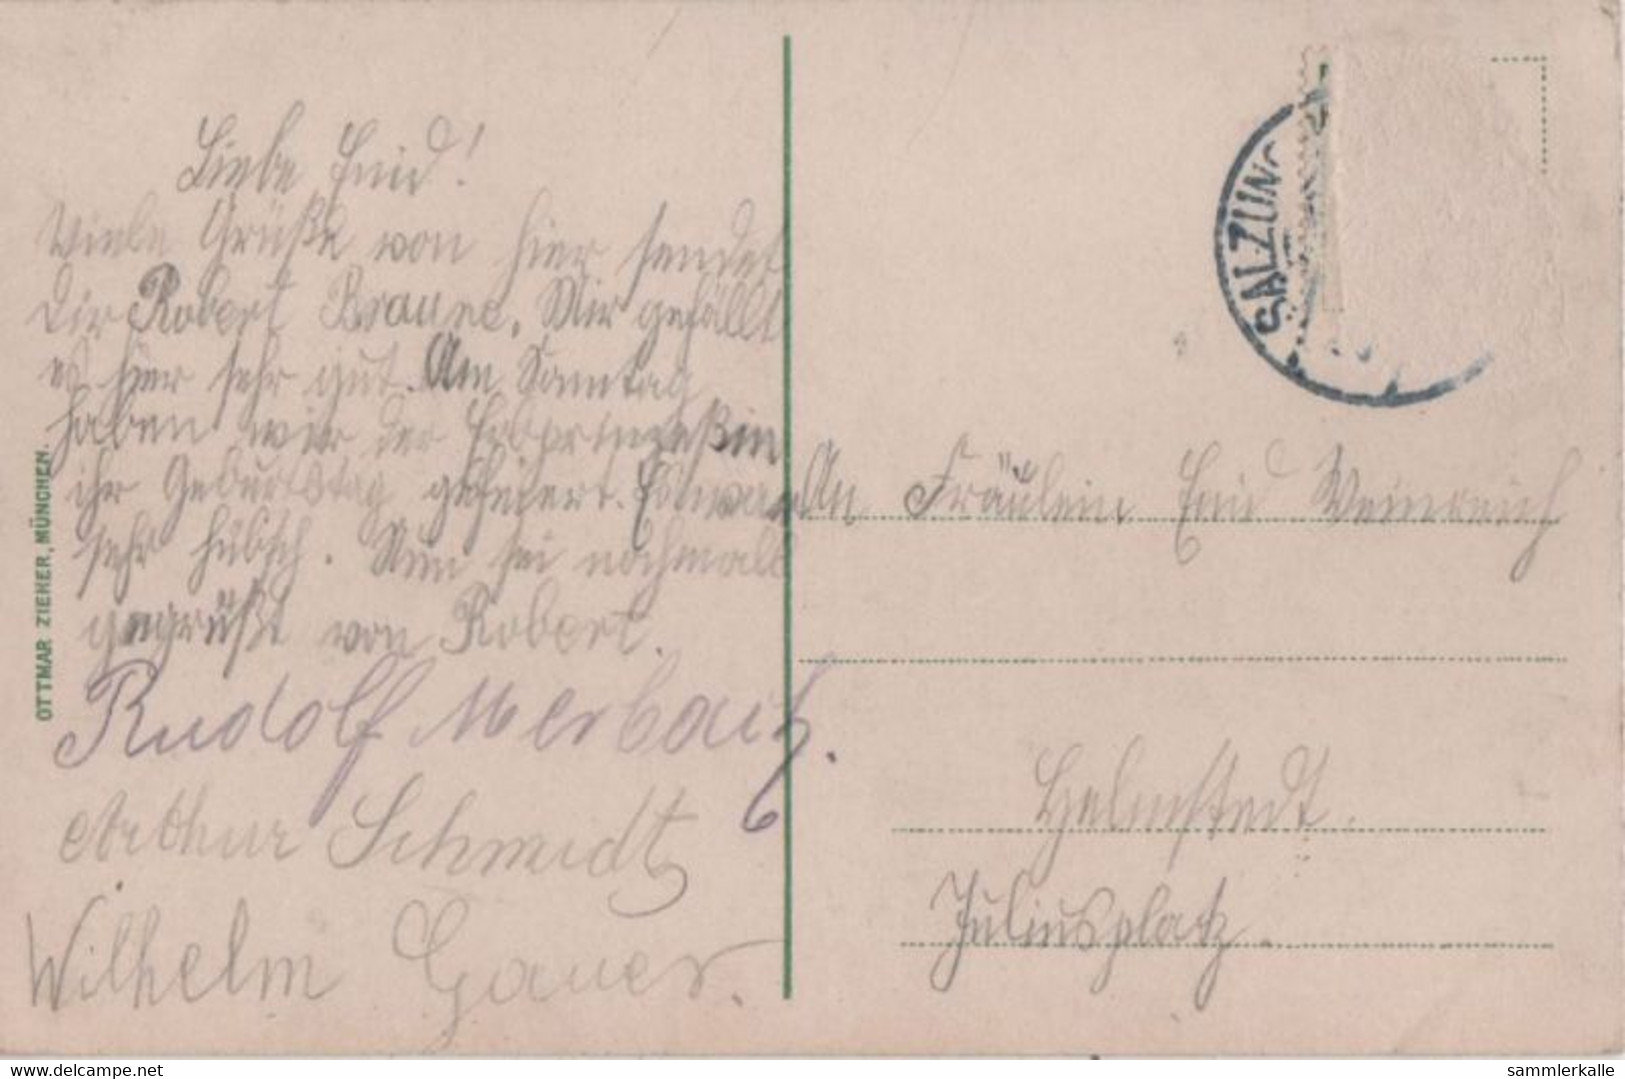 Liebe Enid!
Viele Grüße von hier sendet
dir Robert Brauer. Mir gefällt
es hier sehr gut. Am Sonntag
haben wir der Erbprinzeßin
ihr Geburtstag gefeiert. Es war
sehr hübsch. Nun sei nochmals
gegrüßt von Robert.
Rudolf Merbach.
Arthur Schmidt
Wilhelm Gauer.
OTTMAR ZIEHER, MÜNCHEN.
SALZUNG
An Fräulein Enid Weinreich
Helmstedt.
Juliusplatz.
www.delcampe.net
sammlerkalle